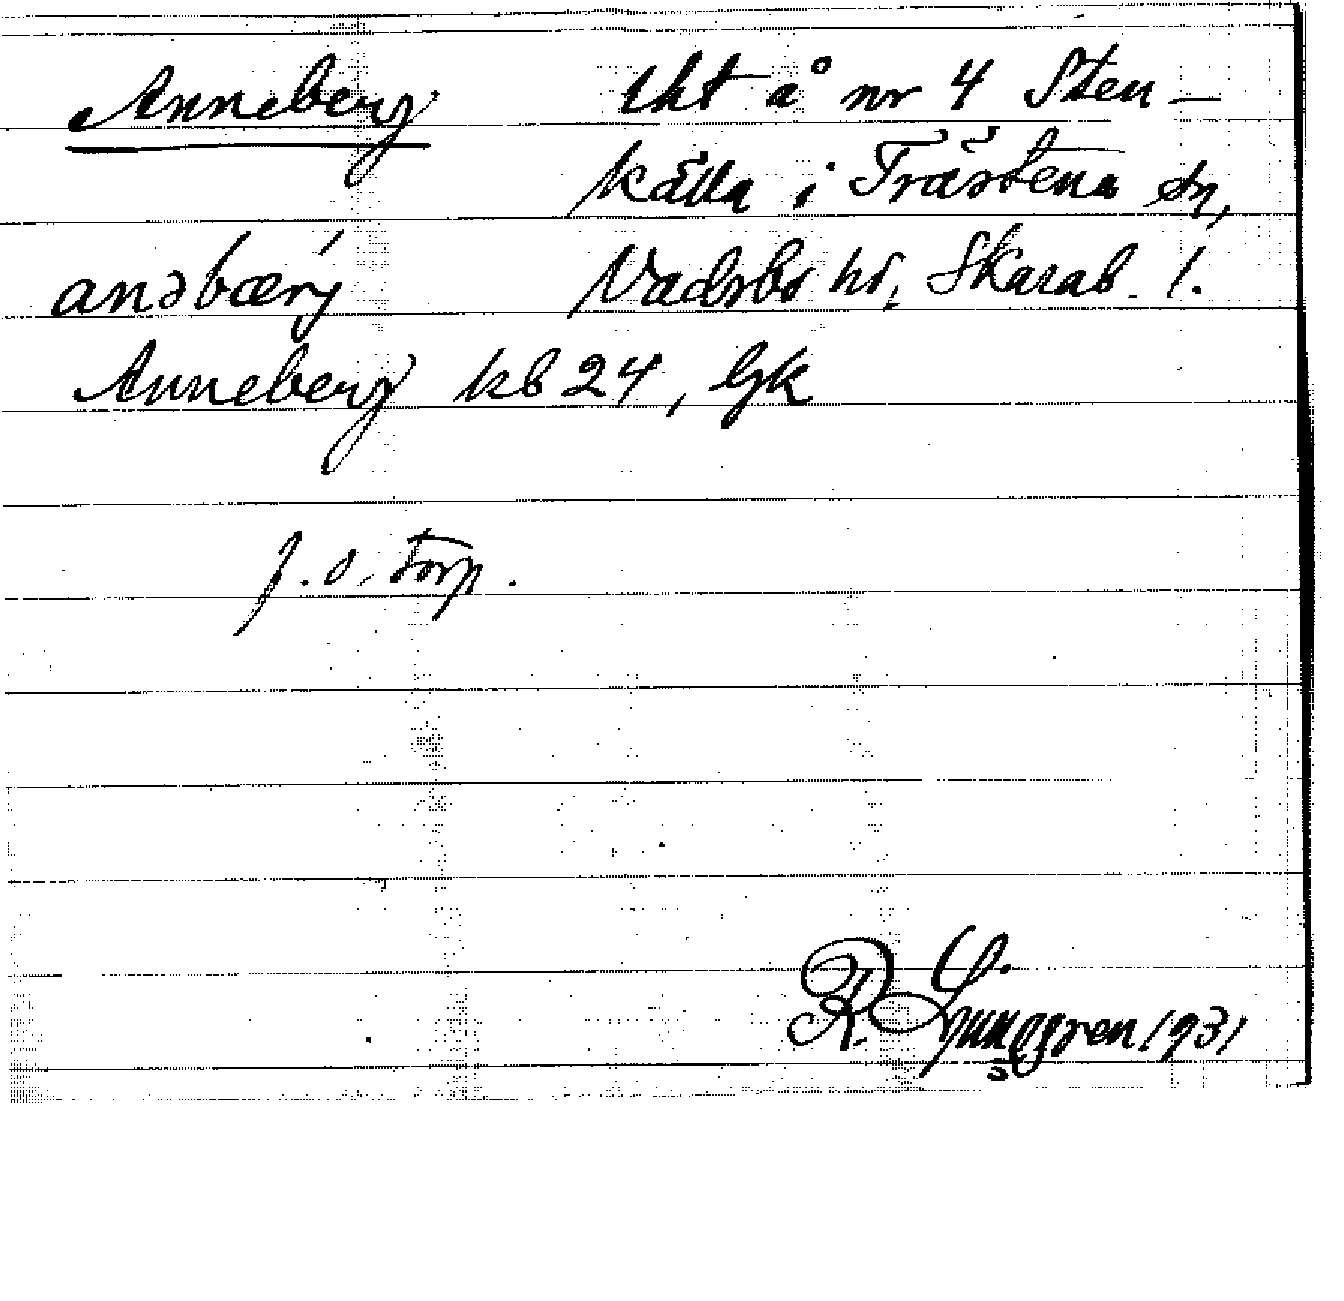 Anneberg lht å nr 4 Sten-
källa i Trästena sn,
anəbærj Vadsbo hd, Skarab. l.
Anneberg kb 24, Gk
f. d. torp.
R. Ljunggren 1931